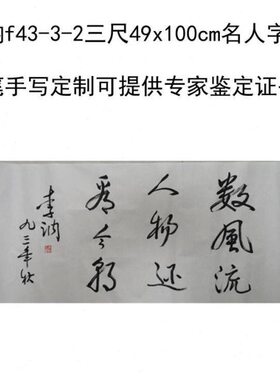 f43-3-2三尺49x100cm名人字
手写定制可提供专家鉴定证
数風流
人物还
看今朝
李讷
九三年秋